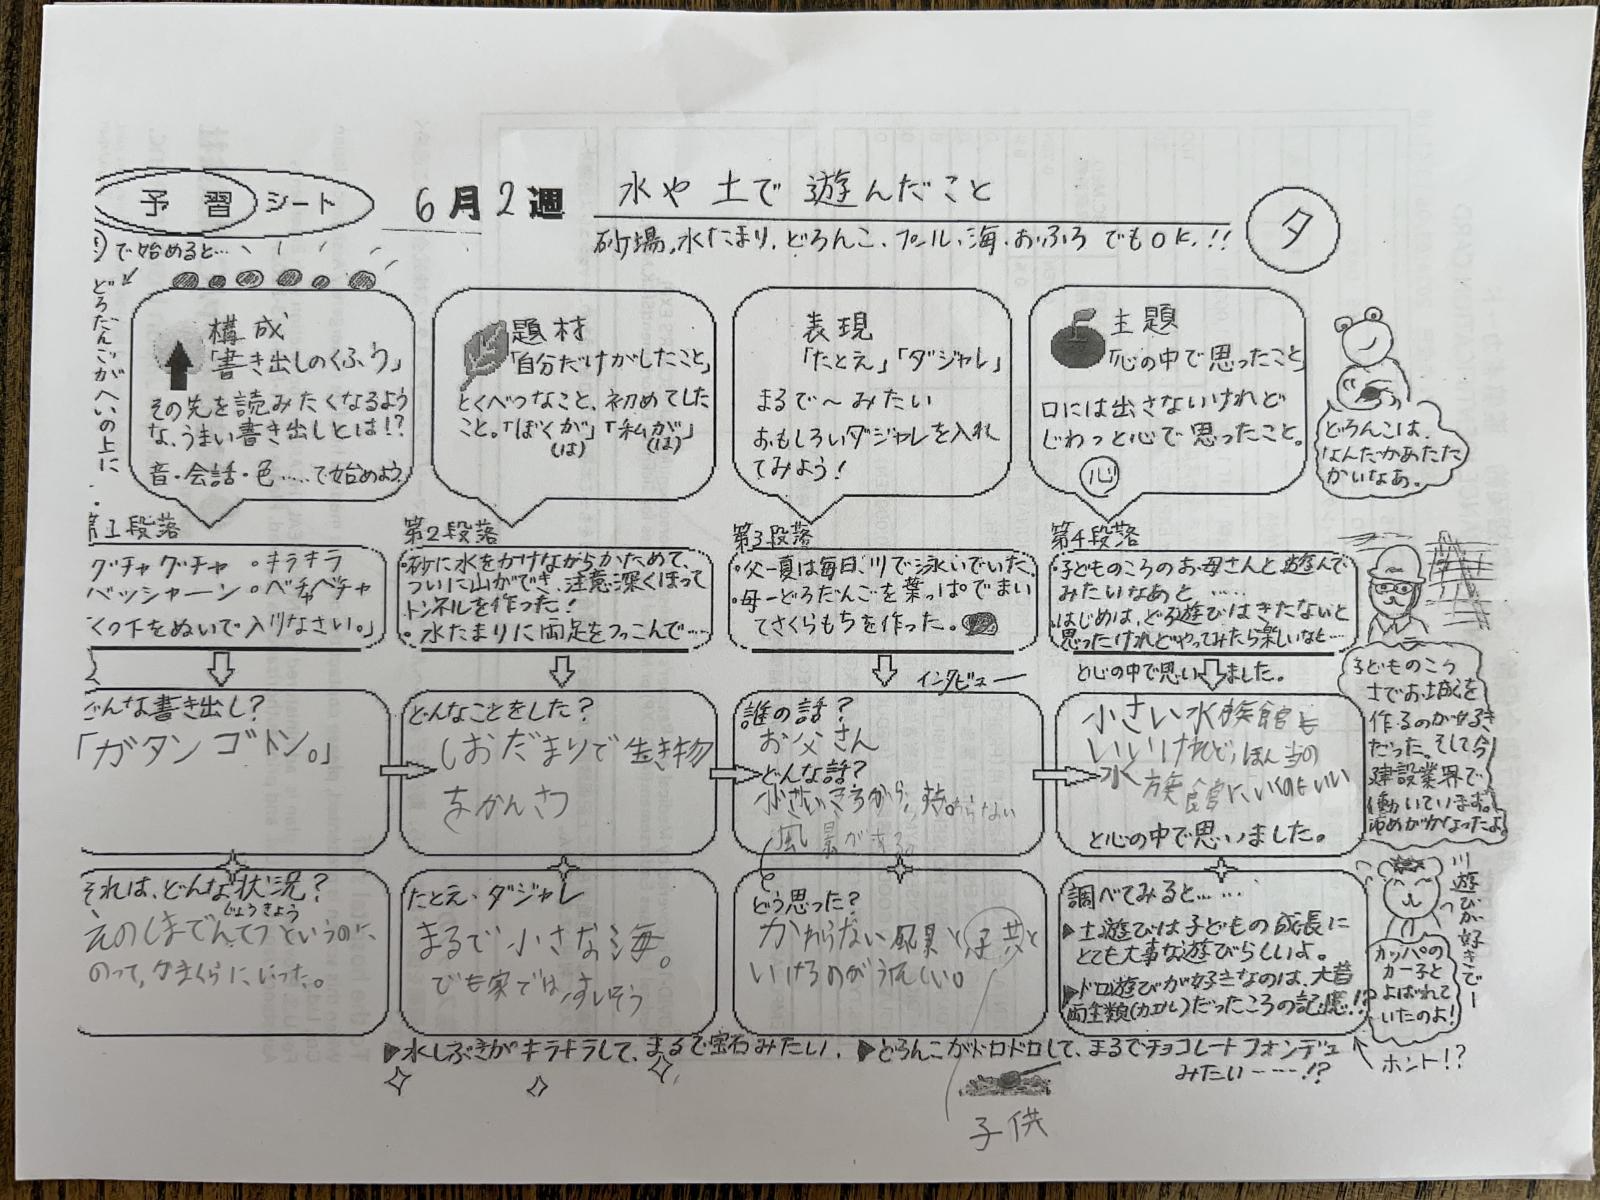 予習シート
6月2週
水や土で遊んだこと
砂場、水たまり、どろんこ、プール、海、おふろでもOK!!
夕
で始めると…
どろだんごがへいの上に
構成
「書き出しのくふう」
その先を読みたくなるよう
な、うまい書き出しとは!?
音・会話・色……で始めよう。
題材
「自分だけがしたこと」
とくべつなこと、初めてした
こと。「ぼくが」「私が」
(は) (は)
表現
「たとえ」「ダジャレ」
まるで〜みたい
おもしろいダジャレを入れ
てみよう!
主題
「心の中で思ったこと」
口には出さないけれど
じわっと心で思ったこと。
心
どろんこは、
なんだかあたた
かいなあ。
第1段落
グチャグチャ ・キラキラ
バッシャーン ・ベチャベチャ
くつ下をぬいで入りなさい。」
第2段落
・砂に水をかけながらかためて、
ついに山ができ、注意深くほって
トンネルを作った!
・水たまりに両足をつっこんで……
第3段落
・父ー夏は毎日、川で泳いでいた。
・母ーどろだんごを葉っぱでまい
てさくらもちを作った。
第4段落
・子どものころのお母さんと遊んで
みたいなあと……
はじめは、どろ遊びはきたないと
思ったけれどやってみたら楽しいなと…
と心の中で思いました。
インタビュー
どんな書き出し?
「ガタンゴトン。」
どんなことをした?
しおだまりで生き物
をかんさつ
誰の話?
お父さん
どんな話?
小さいころから、変わらない
風景がある。
小さい水族館も
いいけれど、ほん当の
水族館にいくのもいい
と心の中で思いました。
子どものころ
土でお城を
作るのが好き
だった。そして今
建設業界で
働いています。
ゆめがかなったよ。
それは、どんな状況?
じょうきょう
えのしまでんてつというのに、
のって、かまくらにいった。
たとえ・ダジャレ
まるで小さな海。
でも実では、すいそう
どう思った?
かわらない風景と子共と
いけるのがうれしい。
調べてみると……
▶土遊びは子どもの成長に
とても大事な遊びらしいよ。
▶ドロ遊びが好きなのは、大昔
両生類(カエル)だったころの記憶!?
川遊びが好きでー
カッパの
カー子と
よばれて
いたのよ!
ホント!?
▶水しぶきがキラキラして、まるで宝石みたい。
▶どろんこがドロドロして、まるでチョコレートフォンデュ
みたい……!?
子供